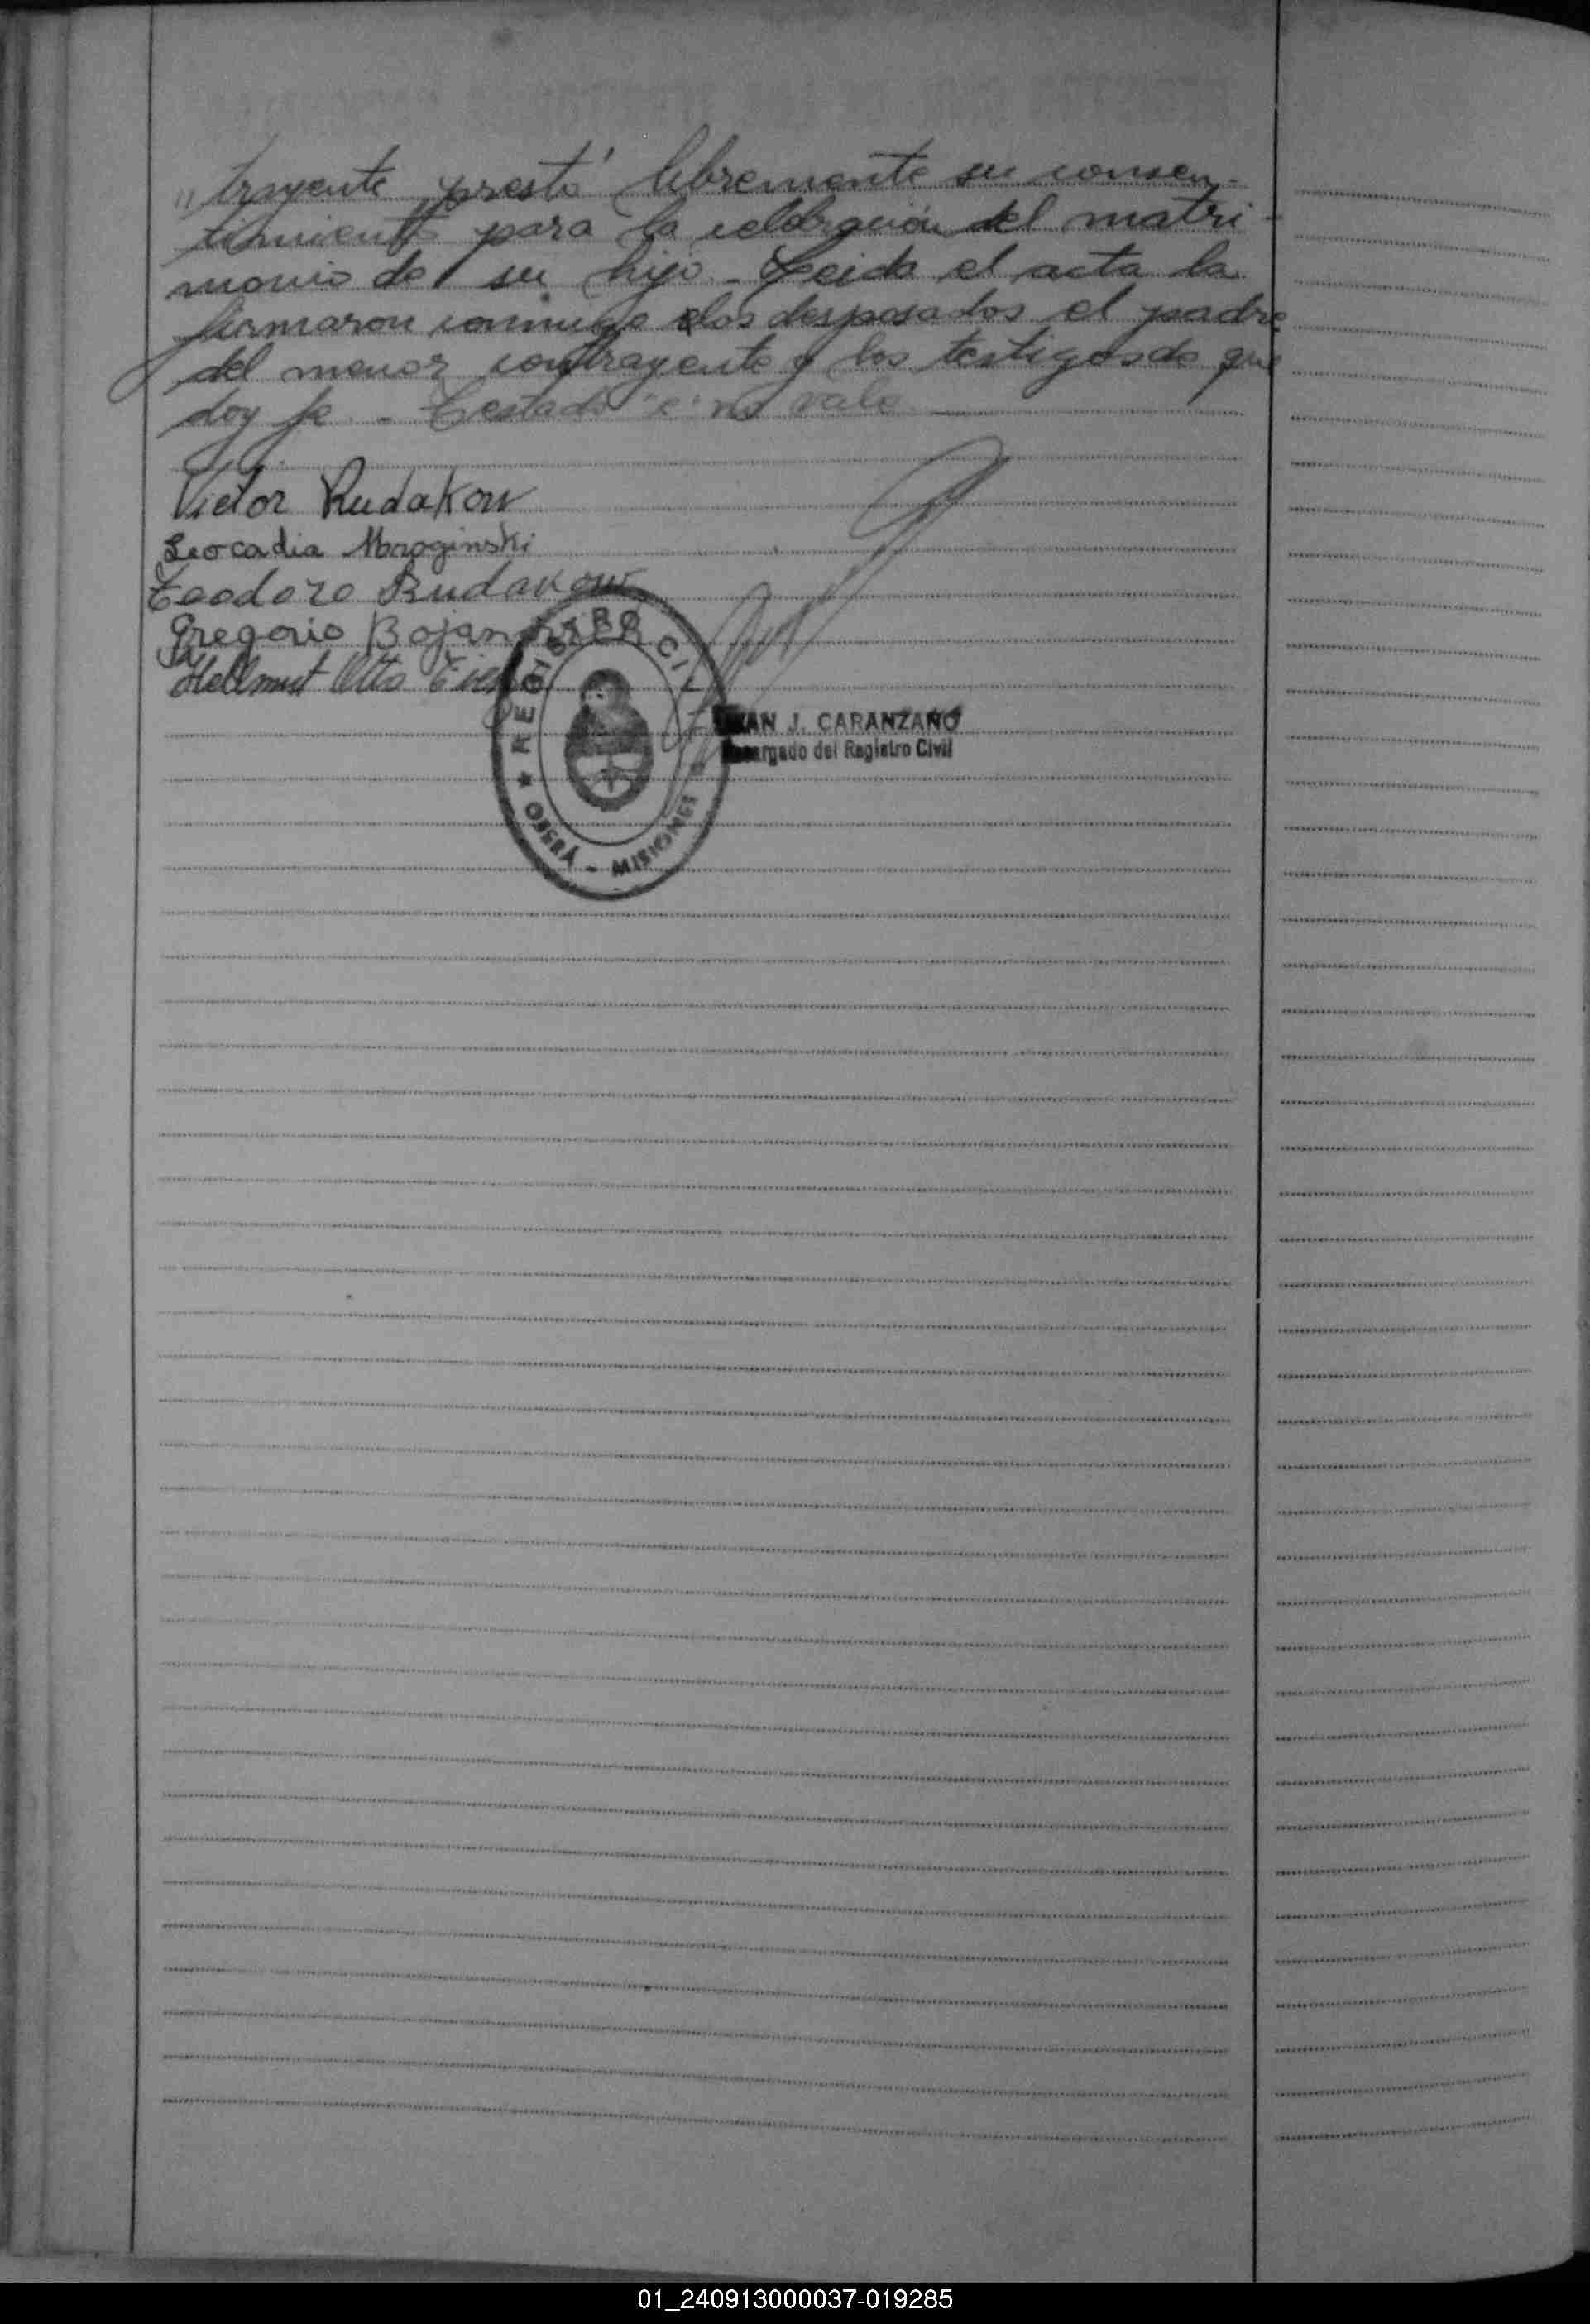 "trayente prestó libremente su consen-
timiento para la celebración del matri-
monio de su hijo - Leida el acta la
firmaron conmigo los desposados el padre
del menor contrayente y los testigos de que
doy fe - Testado "e" no vale.
Victor Rudakow
Leocadia Mrozinski
Teodoro Rudakow
Gregorio
Hellmut Otto
REGISTRO CIVIL
J. CARANZANO
del Registro Civil
MISIONES
01_240913000037-019285